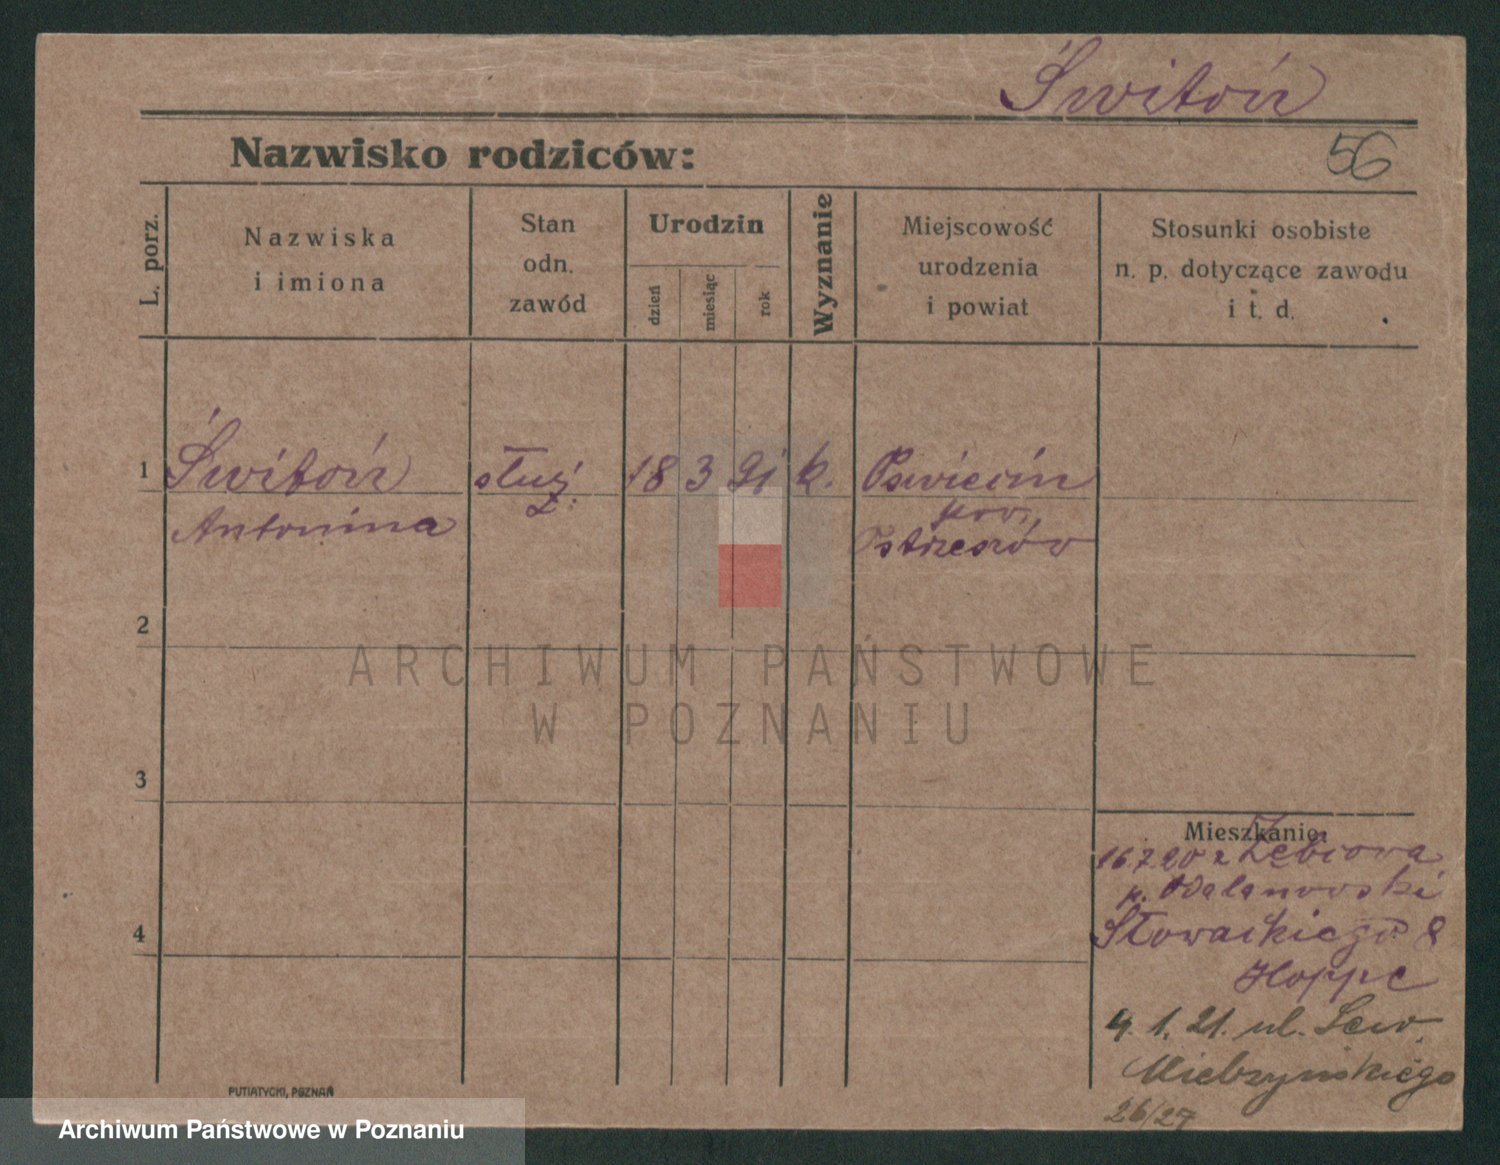 Świtoń
Nazwisko rodziców:
56
L. porz.
Nazwiska
i imiona
Stan
odn.
zawód
Urodzin
dzień
miesiąc
rok
Wyznanie
Miejscowość
urodzenia
i powiat
Stosunki osobiste
n. p. dotyczące zawodu
i t. d.
1
Świtoń
Antonina
służ.
18
3
91
k.
pow.
Ostrzeszów
2
ARCHIWUM PAŃSTWOWE
W POZNANIU
3
Mieszkanie:
16.7.20 z
p. Odolanowski
Słowackiego 8
Hoppe
4
4. 1. 21. ul. Sew.
Mielżyńskiego
26/27
PUTIATYCKI, POZNAŃ
Archiwum Państwowe w Poznaniu